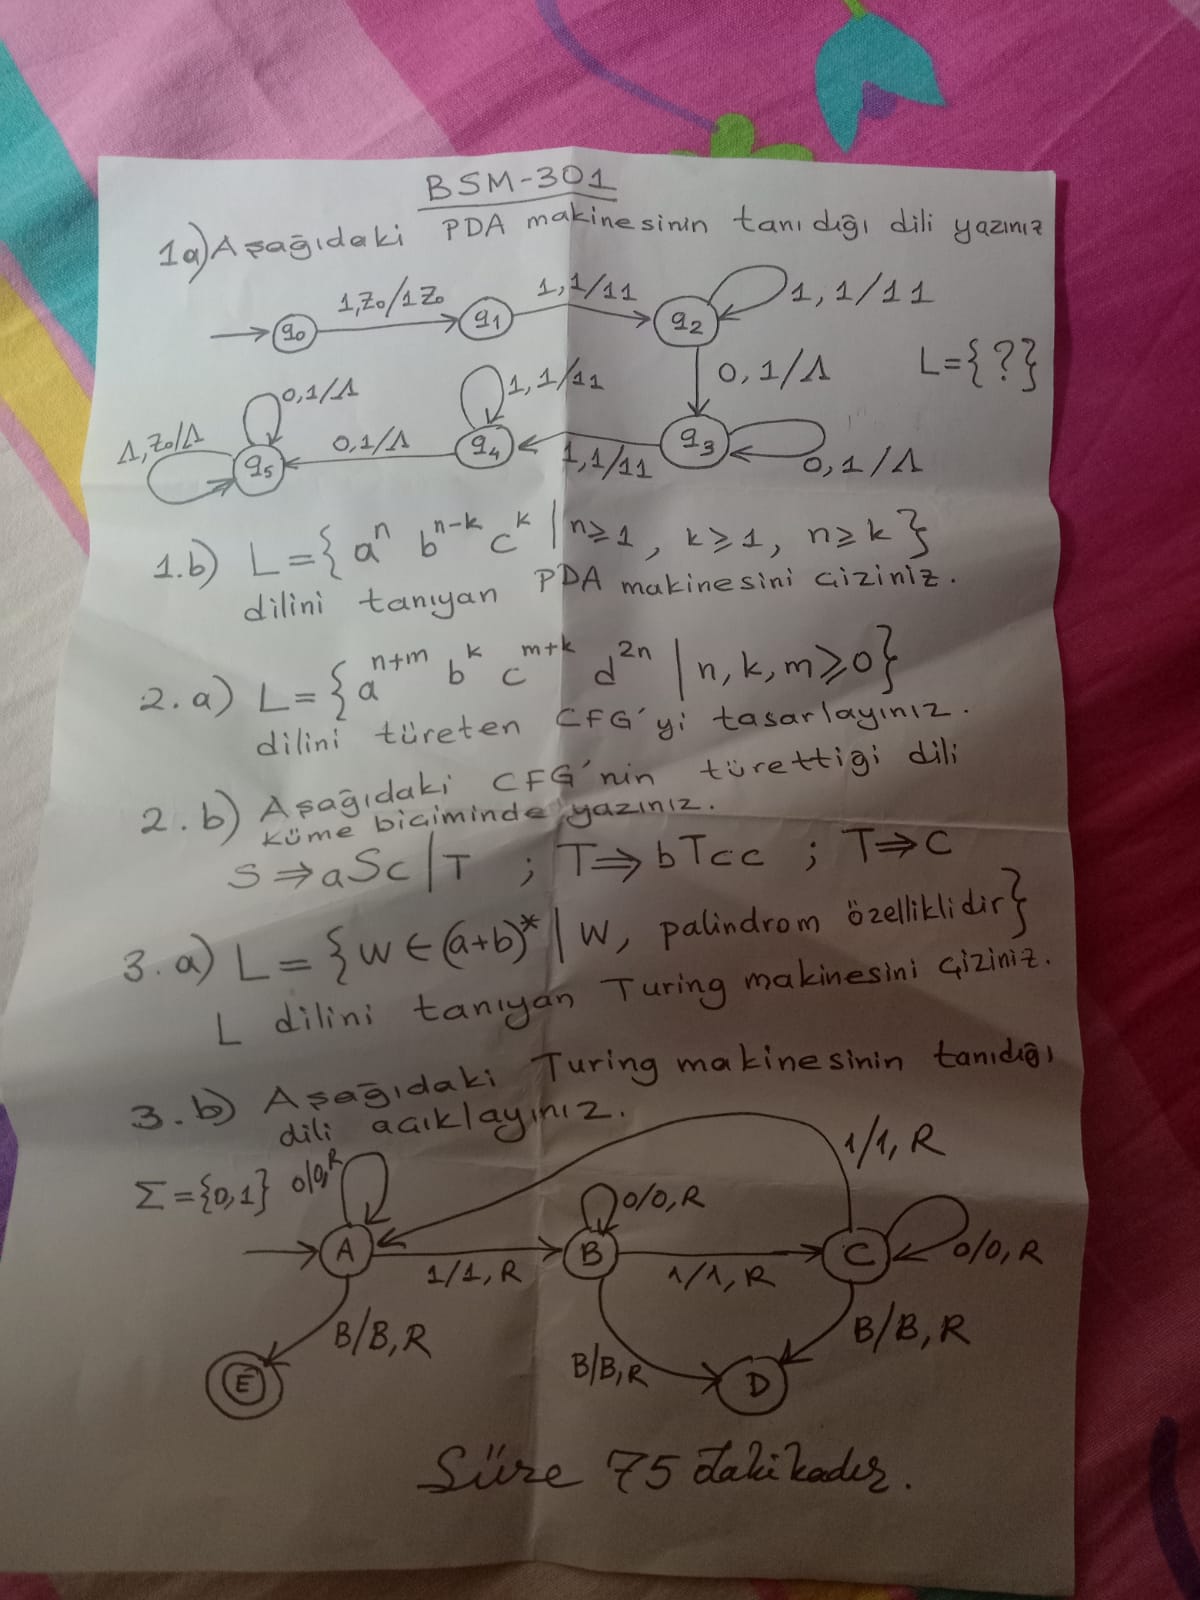 BSM-301
1a) Aşağıdaki PDA makinesinin tanıdığı dili yazınız
1,Z₀/1Z₀ 1,1/11 1,1/11
q₀ q₁ q₂
0,1/Λ L={?}
0,1/Λ 1,1/11
Λ,Z₀/Λ 0,1/Λ 1,1/11 0,1/Λ
q₅ q₄ q₃
1.b) L={aⁿ bⁿ⁻ᵏ cᵏ | n≥1, k≥1, n≥k}
dilini tanıyan PDA makinesini çiziniz.
2.a) L={aⁿ⁺ᵐ bᵏ cᵐ⁺ᵏ d²ⁿ | n,k,m≥0}
dilini türeten CFG'yi tasarlayınız.
2.b) Aşağıdaki CFG'nin türettiği dili
küme biçiminde yazınız.
S⇒aSc|T ; T⇒bTcc ; T⇒C
3.a) L={w∈(a+b)* | W, palindrom özelliklidir}
L dilini tanıyan Turing makinesini çiziniz.
3.b) Aşağıdaki Turing makinesinin tanıdığı
dili açıklayınız.
Σ={0,1} 0/0,R 1/1,R
0/0,R
A B C 0/0,R
1/1,R 1/1,R
B/B,R B/B,R B/B,R
E D
Süre 75 dakikadır.